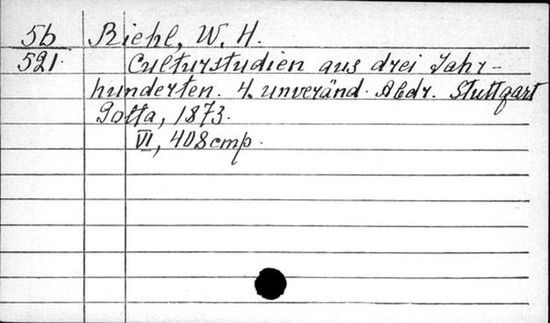 5b Riehl, W. H.
521. Culturstudien aus drei Jahr-
hunderten. 4. unveränd. Abdr. Stuttgart
Cotta, 1873.
VI, 408 стр.